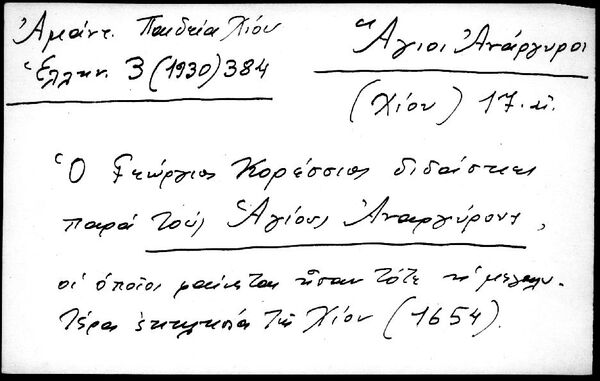 Ἀμάντ. Παιδεία Χίου
Ἑλλην. 3 (1930) 384
Ἅγιοι Ἀνάργυροι
(Χίου) 17. αἰ.
Ὁ Γεώργιος Κορέσσιος διδάσκει
παρά τούς Ἁγίους Ἀναργύρους,
οἱ ὁποῖοι φαίνεται ἦσαν τότε ἡ μεγαλυ-
τέρα ἐκκλησία τῆς Χίου (1654).